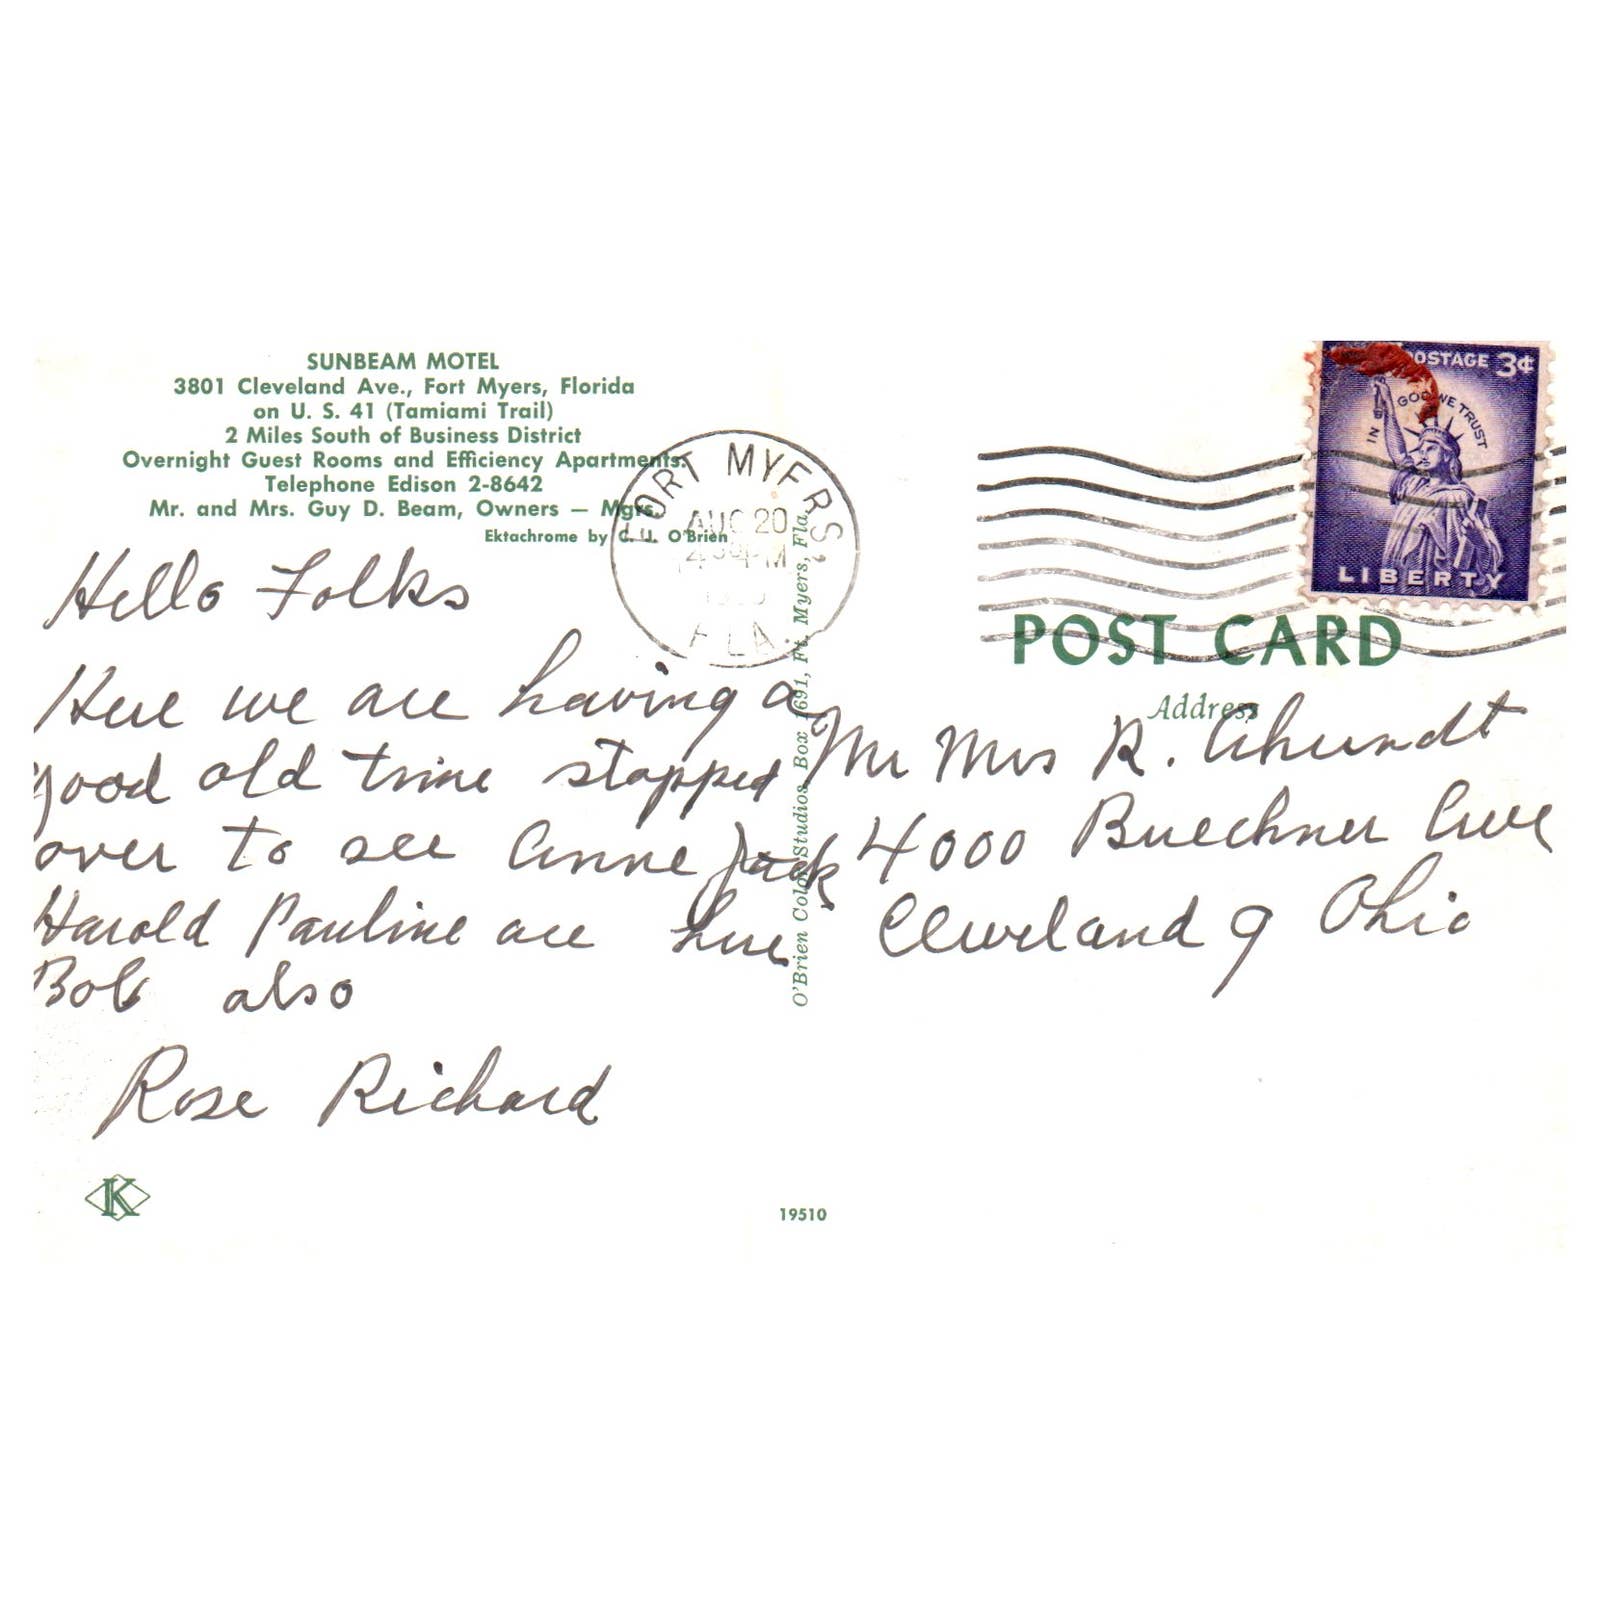 SUNBEAM MOTEL
3801 Cleveland Ave., Fort Myers, Florida
on U. S. 41 (Tamiami Trail)
2 Miles South of Business District
Overnight Guest Rooms and Efficiency Apartments.
Telephone Edison 2-8642
Mr. and Mrs. Guy D. Beam, Owners — Mgrs.
Ektachrome by C. J. O'Brien
Hello Folks
Here we are having a
good old time stopped
over to see Anne Jack
Harold Pauline are here
Bob also
Rose Richard
K
FORT MYERS,
AUG 20
FLA.
O'Brien Color Studios, Box 1691, Ft. Myers, Fla.
19510
POSTAGE 3¢
IN GOD WE TRUST
LIBERTY
POST CARD
Address
Mr Mrs R.
4000 Buechner Ave
Cleveland 9 Ohio